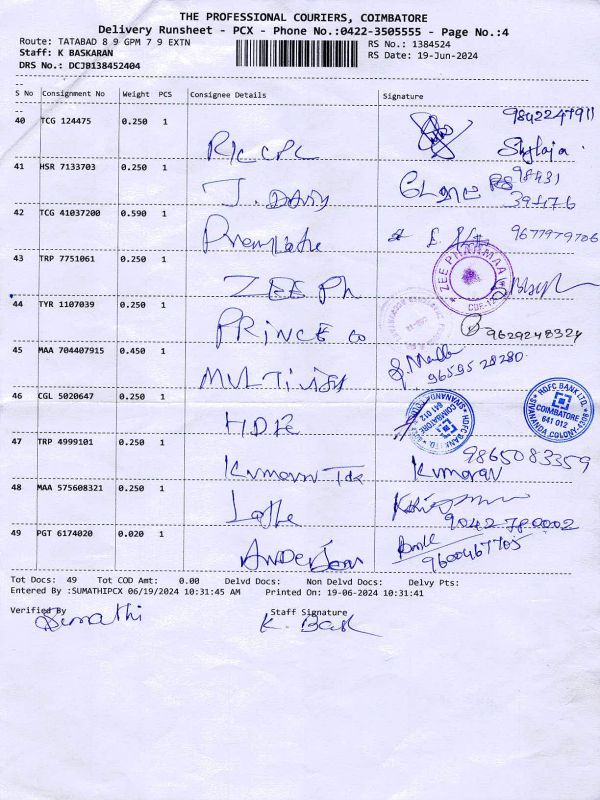 THE PROFESSIONAL COURIERS, COIMBATORE
Delivery Runsheet - PCX - Phone No.:0422-3505555 - Page No.:4
Route: TATABAD 8 9 GPM 7 9 EXTN RS No.: 1384524
Staff: K BASKARAN RS Date: 19-Jun-2024
DRS No.: DCJB138452404
S No Consignment No Weight PCS Consignee Details Signature
40 TCG 124475 0.250 1 9842247911
Shylaja
41 HSR 7133703 0.250 1 98431
39476
42 TCG 41037200 0.590 1 Premlatha 9677979706
43 TRP 7751061 0.250 1 ZEE Ph ZEE PHARMAA
44 TYR 1107039 0.250 1 PRINCE CO 9629248324
45 MAA 704407915 0.450 1 MULTIVISA 9659528280
46 CGL 5020647 0.250 1 HDFC HDFC BANK LTD. COIMBATORE 641 012 SIVANANDA COLONY
HDFC BANK LTD. COIMBATORE 641 012 SIVANANDA COLONY
47 TRP 4999101 0.250 1 Kumaran Tdx Kumaran 9865083359
48 MAA 575608321 0.250 1 Latha 9042780002
49 PGT 6174020 0.020 1 Anderson 9600467705
Tot Docs: 49 Tot COD Amt: 0.00 Delvd Docs: Non Delvd Docs: Delvy Pts:
Entered By :SUMATHIPCX 06/19/2024 10:31:45 AM Printed On: 19-06-2024 10:31:41
Verified By Staff Signature
Sumathi K. Bask